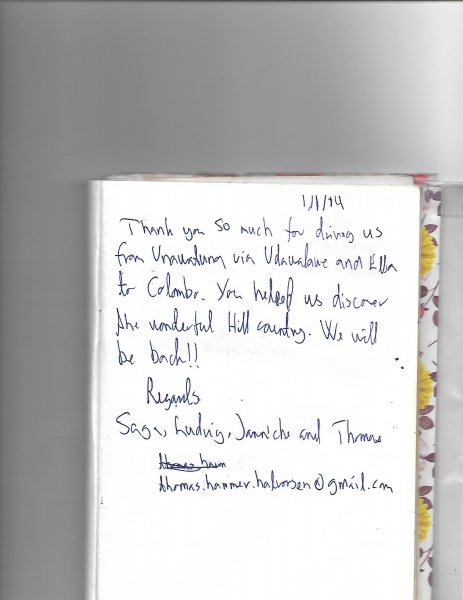 1/1/14
Thank you so much for driving us
from Unawatuna via Udawalawe and Ella
to Colombo. You helped us discover
the wonderful Hill country. We will
be back!!
Regards
Saga, Ludvig, Jannicke and Thomas
thomas.hammer.halvorsen@gmail.com